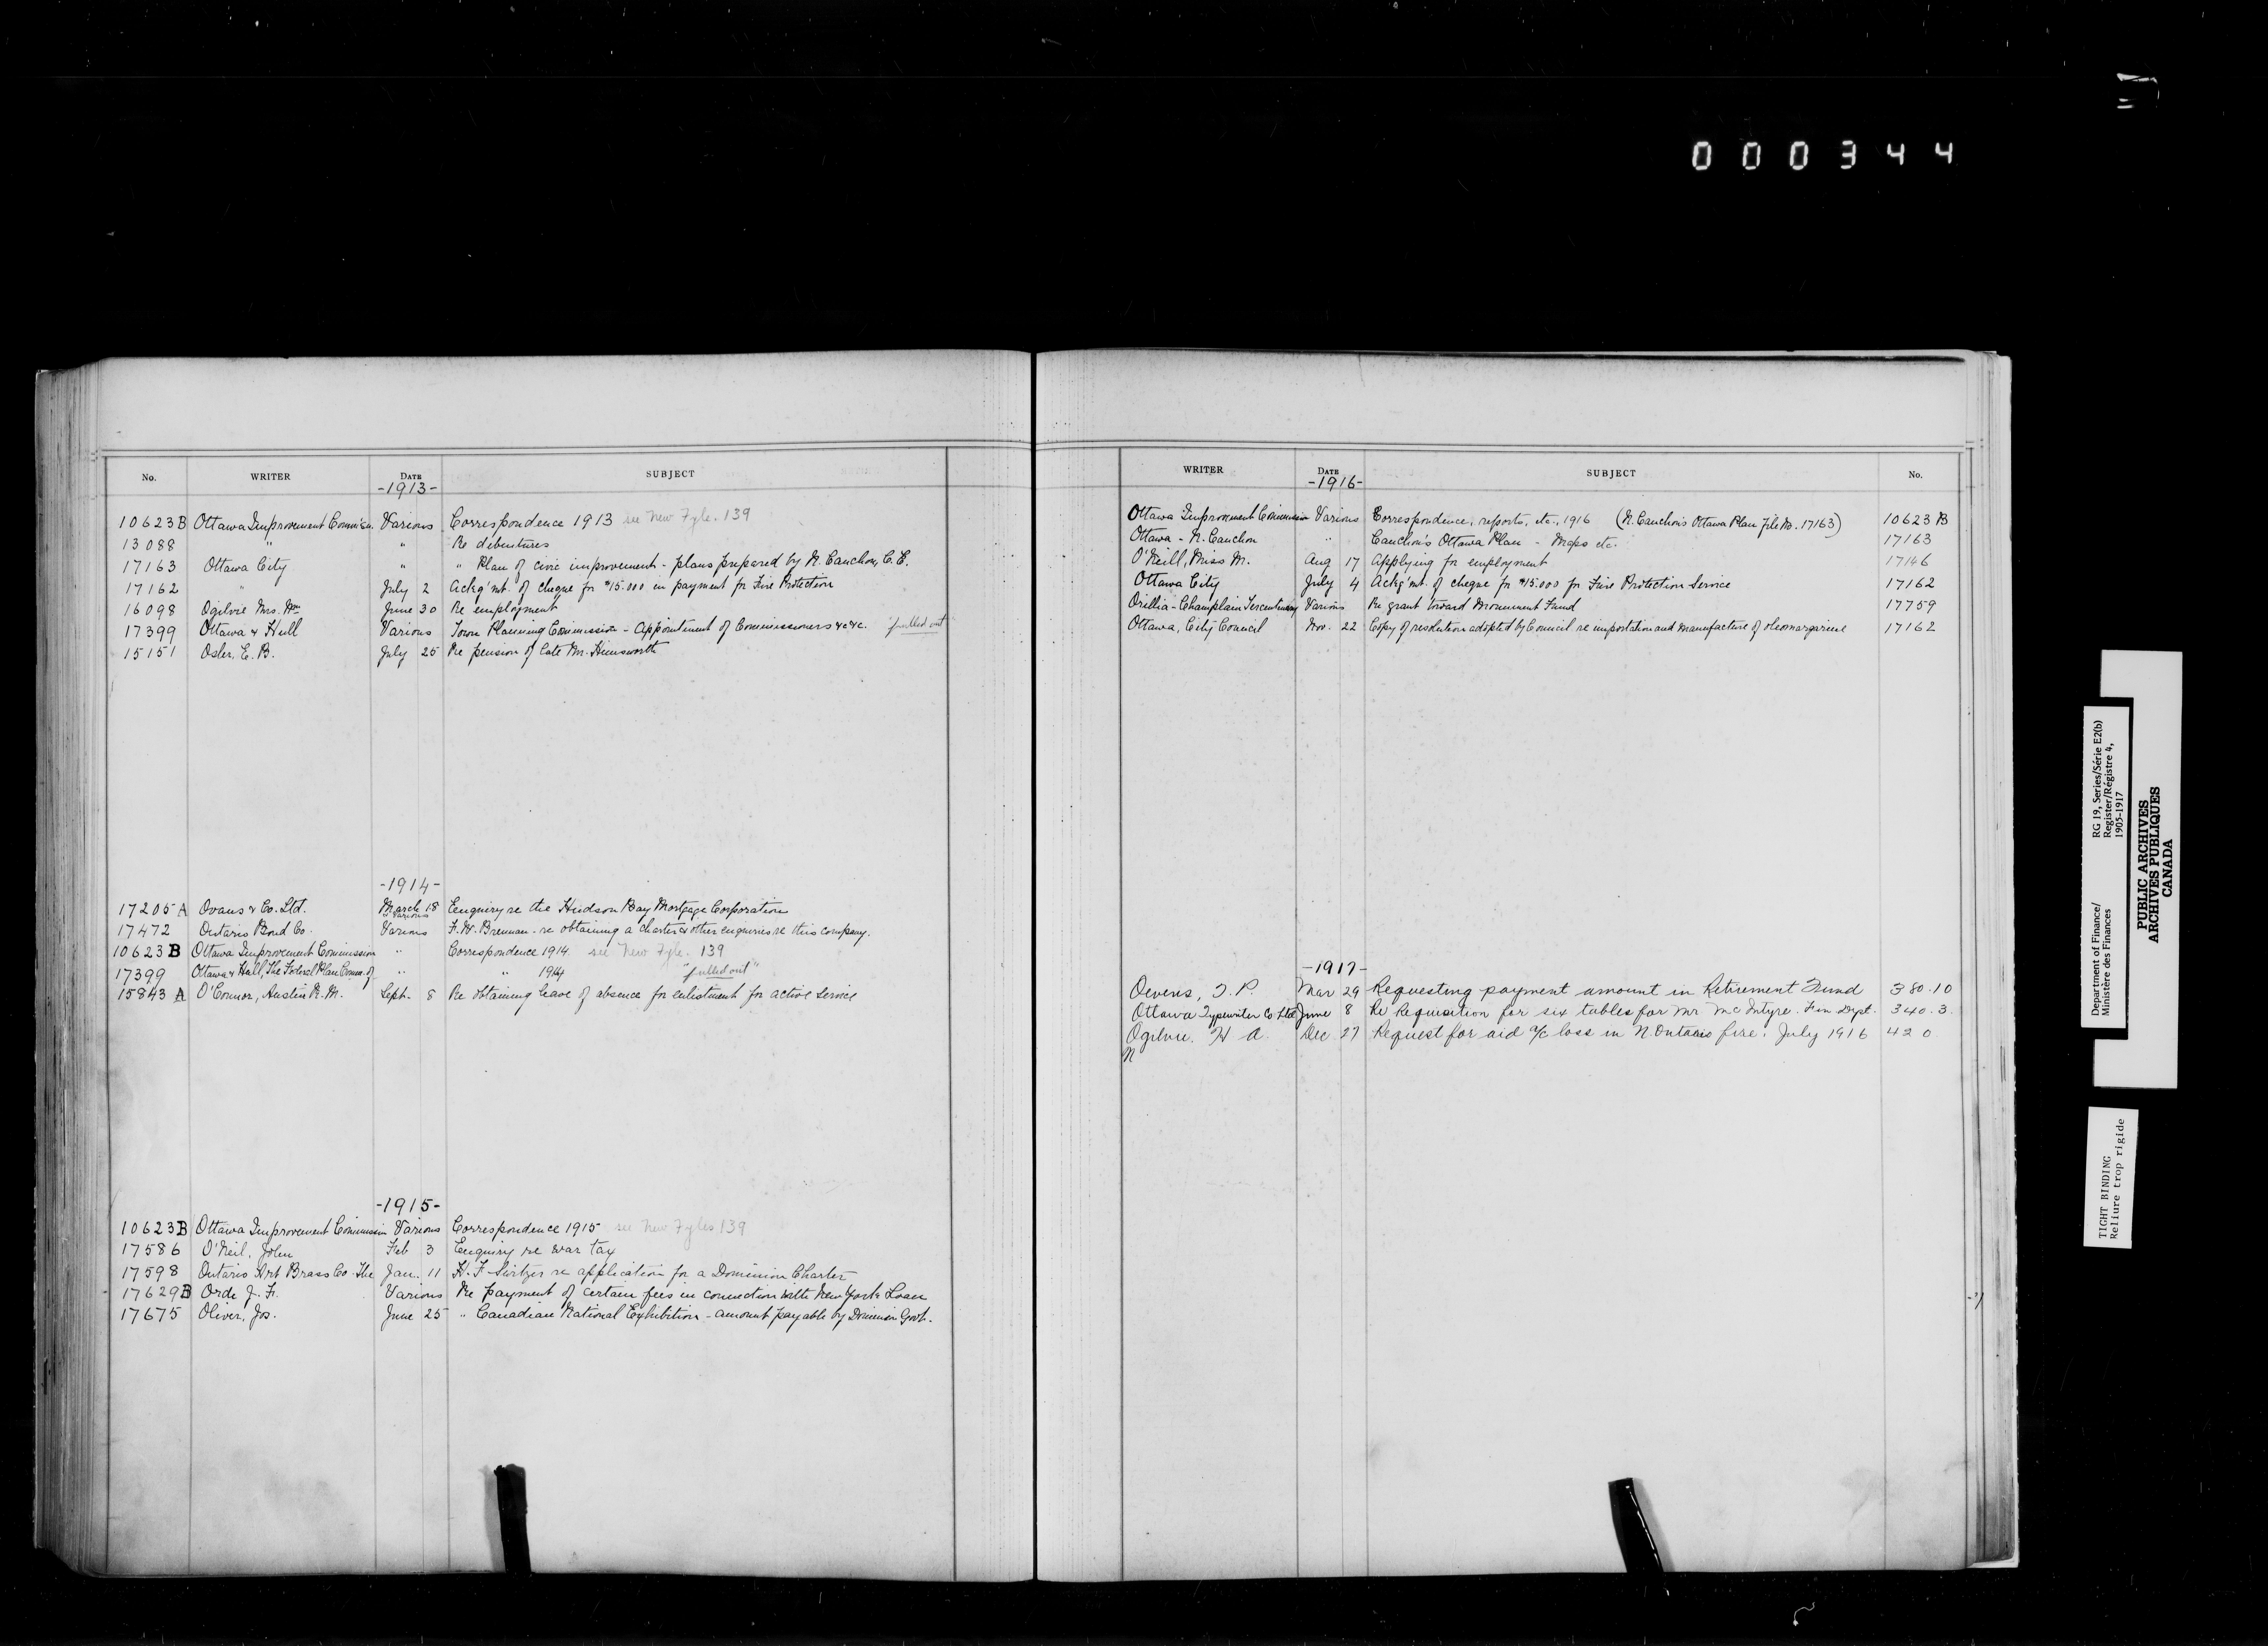 000344
No. WRITER DATE SUBJECT
-1913-
10623B Ottawa Improvement Commissn. Various Correspondence 1913 see New Fyle. 139
13088 " " Re debentures
17163 Ottawa City " " Plan of civic improvement - plans prepared by N. Cauchon, C.E.
17162 " July 2 Ackg'mt. of cheque for $15.000 in payment for Fire Protection
16098 Ogilvie Mrs. Wm June 30 Re employment
17399 Ottawa & Hull Various Town Planning Commission - Appointment of Commissioners &c &c. "pulled out"
15151 Osler, E. B. July 25 Re pension of late Mr. Himsworth
-1914-
17205A Ovans & Co. Ltd. March 18 & Various Enquiry re the Hudson Bay Mortgage Corporation
17472 Ontario Bond Co. Various F. W. Brennan - re obtaining a charter & other enquiries re this company.
10623B Ottawa Improvement Commission " Correspondence 1914 see New Fyle. 139
17399 Ottawa & Hull, The Federal Plan Comm. of " " 1914 "pulled out"
15843A O'Connor, Austin R. M. Sept. 8 Re obtaining leave of absence for enlistment for active service
-1915-
10623B Ottawa Improvement Commission Various Correspondence 1915 see New Fyles 139
17586 O'Neil, John Feb 3 Enquiry re war tax
17598 Ontario Art Brass Co. The Jan. 11 H. F. Switzer re application for a Dominion Charter
17629B Orde J. F. Various Re payment of certain fees in connection with New York Loan
17675 Oliver, Jos. June 25 " Canadian National Exhibition - amount payable by Dominion Govt.
WRITER DATE SUBJECT No.
-1916-
Ottawa Improvement Commission Various Correspondence, reports, etc., 1916 (N. Cauchon's Ottawa Plan file No. 17163) 10623B
Ottawa - N. Cauchon " Cauchon's Ottawa Plan - Maps etc. 17163
O'Neill, Miss M. Aug 17 Applying for employment 17146
Ottawa City July 4 Ackg'mt. of cheque for $15.000 for Fire Protection Service 17162
Orillia - Champlain Tercentenary Various Re grant toward Monument Fund 17759
Ottawa, City Council Nov. 22 Copy of resolution adopted by Council re importation and manufacture of oleomargarine 17162
-1917-
Owens, T. P. Mar 29 Requesting payment amount in Retirement Fund 380.10
Ottawa Typewriter Co Ltd June 8 Re Requisition for six tables for Mr. McIntyre. Fin Dept. 340.3.
Ogilvie. H A. Dec. 27 Request for aid a/c loss in N. Ontario fire. July 1916 420
N
Department of Finance/
Ministère des Finances
RG 19, Series/Série E2(b)
Register/Régistre 4,
1905-1917
PUBLIC ARCHIVES
ARCHIVES PUBLIQUES
CANADA
TIGHT BINDING
Reliure trop rigide